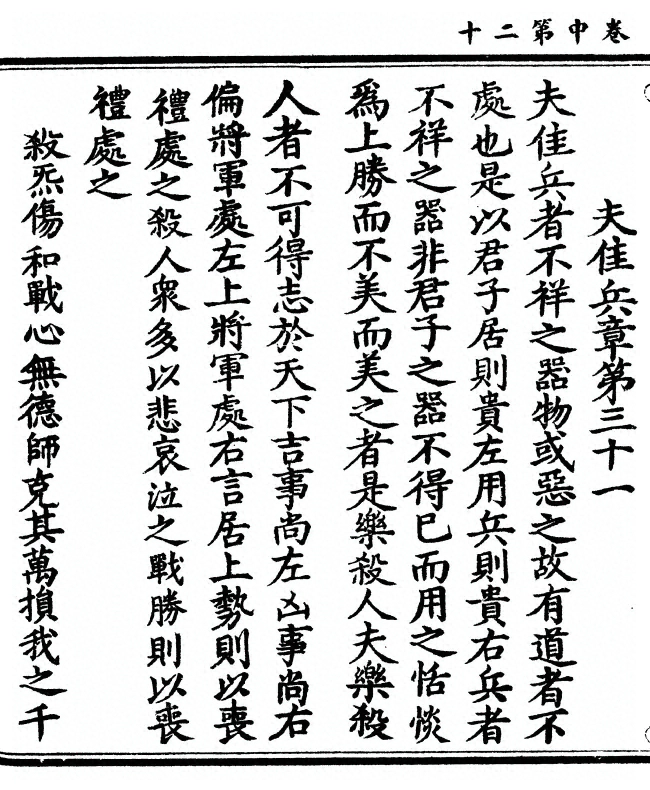 卷中第二十
夫佳兵章第三十一
夫佳兵者不祥之器物或惡之故有道者不
處也是以君子居則貴左用兵則貴右兵者
不祥之器非君子之器不得已而用之恬惔
爲上勝而不美而美之者是樂殺人夫樂殺
人者不可得志於天下吉事尚左凶事尚右
偏將軍處左上將軍處右言居上勢則以喪
禮處之殺人衆多以悲哀泣之戰勝則以喪
禮處之
殺炁傷和戰心無德師克其萬損我之千